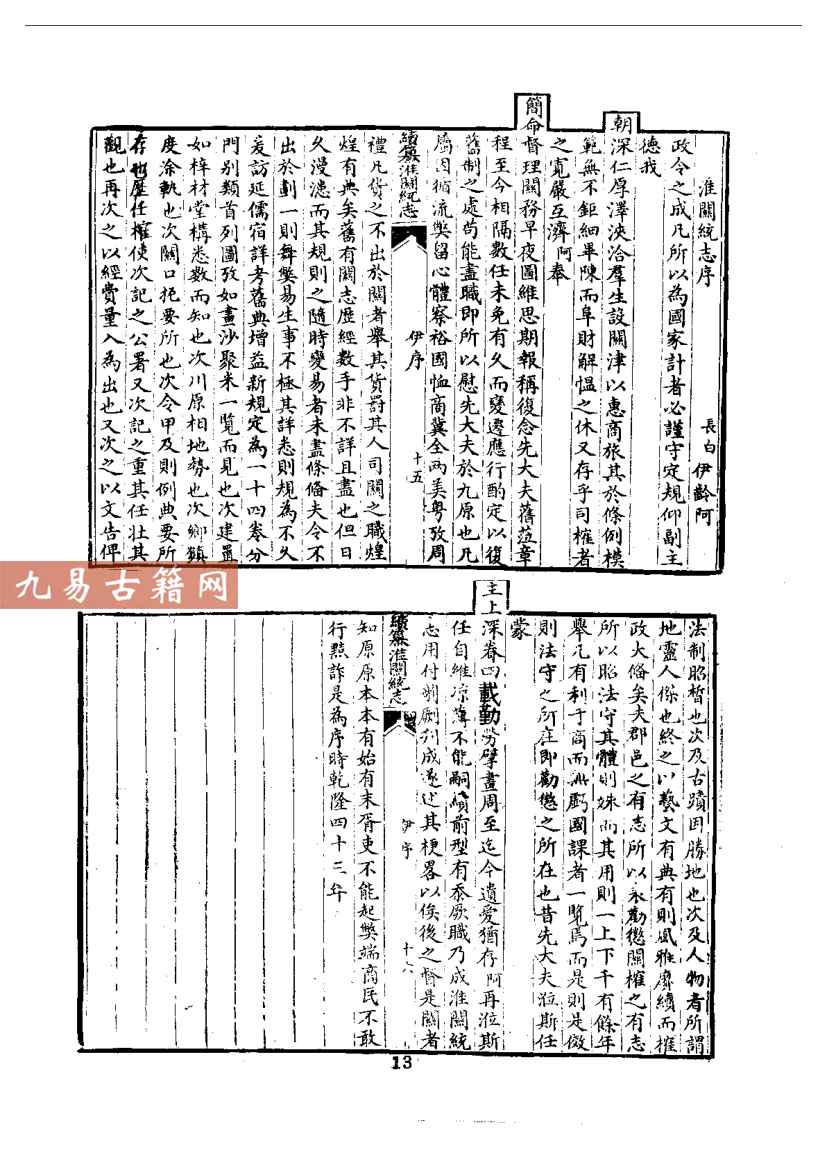 淮關統志序
長白伊齡阿
政令之成凡所以為國家計者必謹守定規仰副主
德我
朝深仁厚澤浹洽羣生設關津以惠商旅其於條例模
範無不鉅細畢陳而阜財解慍之休又存乎司榷者
之寬嚴互濟阿奉
簡命督理關務早夜圖維思期報稱復念先大夫舊蒞章
程至今相隔數任未免有久而變遷應行酌定以復
舊制之處苟能盡職即所以慰先大夫於九原也凡
因循流獘留心體察裕國恤商冀全兩美粵攷周
續纂淮關統志
伊序
十五
禮凡貨之不出於關者舉其貨罰其人司關之職煌
煌有典矣舊有關志歷經數手非不詳且盡也但日
久漫漶而其規則之隨時變易者未盡條俻夫令不
出於劃一則舞獘易生事不極其詳悉則規為不久
爰訪延儒宿詳考舊典增益新規定為一十四卷分
門別類首列圖攷如畫沙聚米一覽而見也次建置
如梓材堂構悉數而知也次川原相地勢也次鄉鎮
度涂軌也次關口扼要所也次令甲及則例典要所
存也歷任榷使次記之公署又次記之重其任壯其
觀也再次之以經費量入為出也又次之以文告俾
法制昭晳也次及古蹟因勝地也次及人物者所謂
地靈人傑也終之以藝文有典有則風雅賡續而榷
政大俻矣夫郡邑之有志所以永勸懲關榷之有志
所以昭法守其體則殊而其用則一上下千有餘年
舉凡有利于商而無虧國課者一覽焉而是則是傚
則法守之所在即勸懲之所在也昔先大夫涖斯任
蒙
主上深眷四載勤勞擘畫周至迄今遺愛猶存阿再涖斯
任自維凉薄不能嗣續前型有忝厥職乃成淮關統
志用付剞劂刋成遂述其梗畧以俟後之督是關者
續纂淮關統志
伊序
十六
知原原本本有始有末胥吏不能起獘端商民不敢
行黠詐是為序時乾隆四十三年
13
九易古籍网